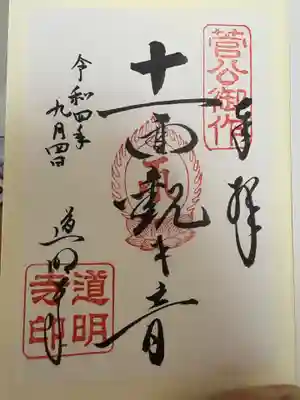 菅公御作
奉拝
十一面観世音
令和四年
九月四日
道明寺
道明
寺印